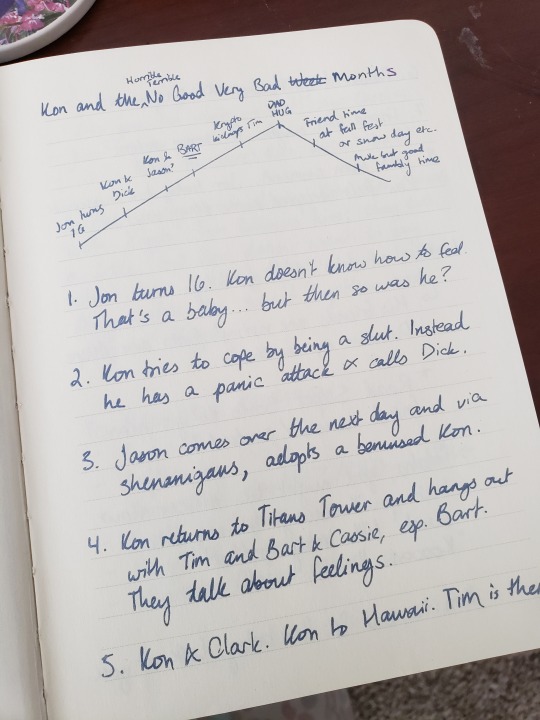 Horrible
Terrible
Kon and the ^ No Good Very Bad Week Months
Jon turns
16
Kon &
Dick
Kon &
Jason?
BART
Krypto
kidnaps Tim
DAD
HUG
Friend time
at fall fest
or snow day etc.
Awk but good
family time
1. Jon turns 16. Kon doesn't know how to feel.
That's a baby... but then so was he?
2. Kon tries to cope by being a slut. Instead
he has a panic attack & calls Dick.
3. Jason comes over the next day and via
shenanigans, adopts a bemused Kon.
4. Kon returns to Titans Tower and hangs out
with Tim and Bart & Cassie, esp. Bart.
They talk about feelings.
5. Kon & Clark. Kon to Hawaii. Tim is ther